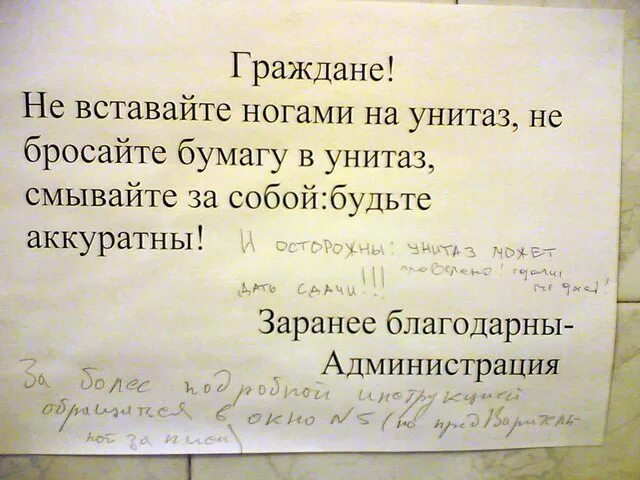 Граждане!
Не вставайте ногами на унитаз, не
бросайте бумагу в унитаз,
смывайте за собой:будьте
аккуратны!
И ОСТОРОЖНЫ: УНИТАЗ МОЖЕТ
ДАТЬ СДАЧИ!!!
проверено! сдачи
не дает!
Заранее благодарны-
Администрация
За более подробной инструкцией
обращаться в окно №5 (по предваритель-
ной записи)